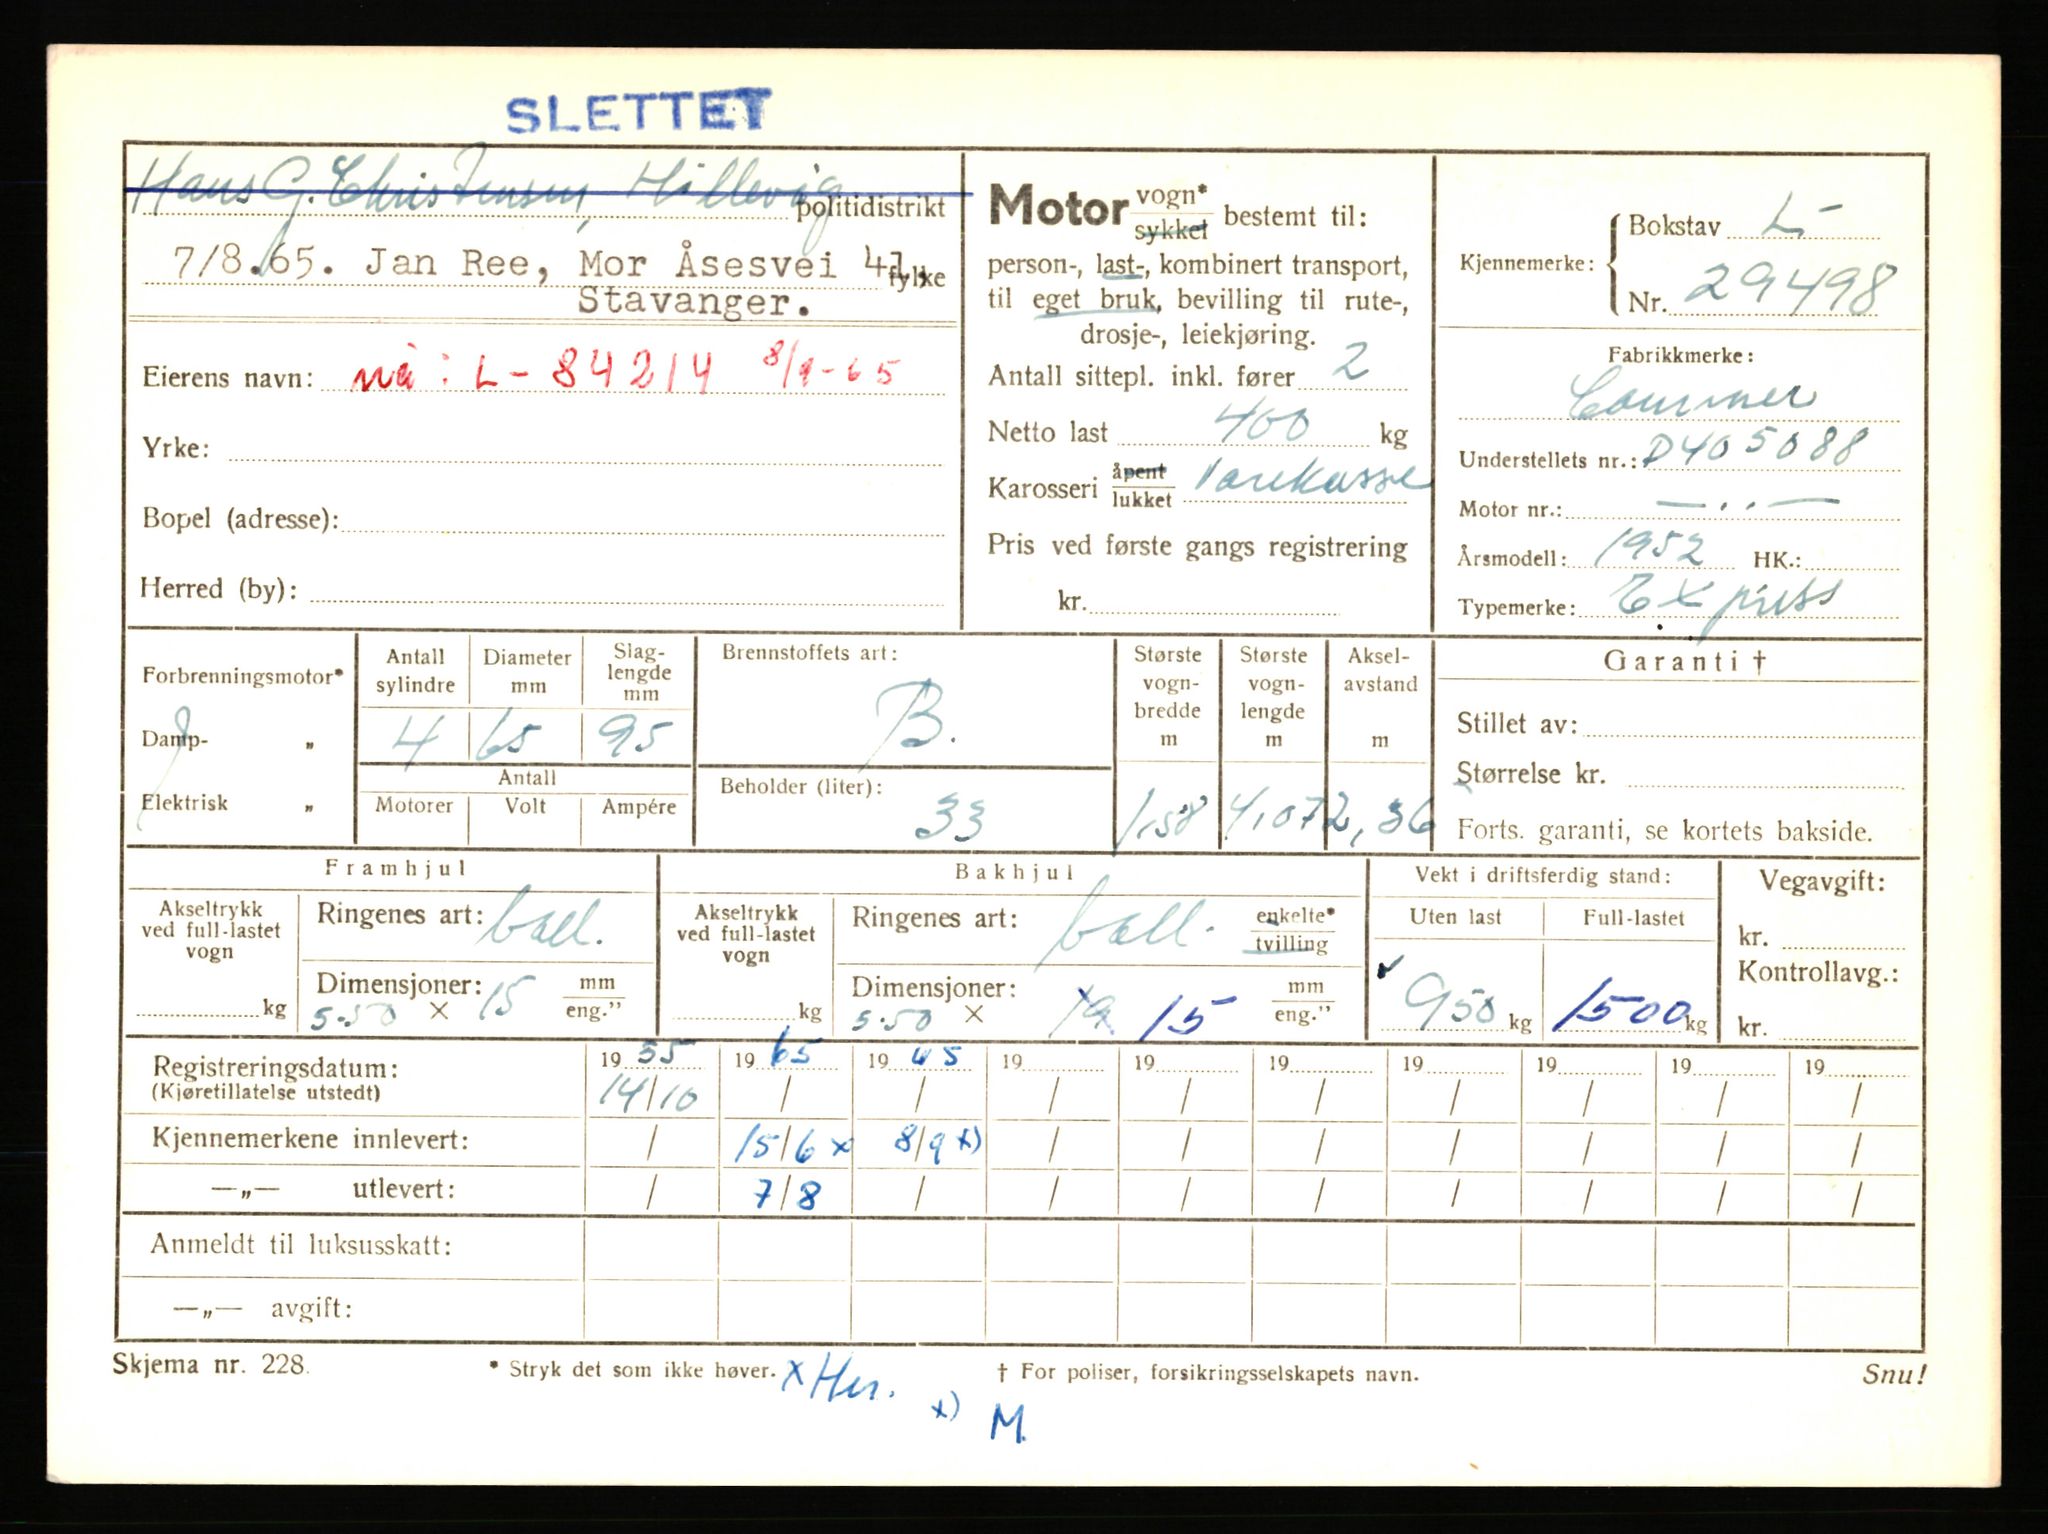 SLETTET
Hans G. Christensen, Hillevåg
politidistrikt
7/8.65. Jan Ree, Mor Åsesvei 41,
fylke
Stavanger.
Eierens navn: nå: L-84214 8/9-65
Yrke:
Bopel (adresse):
Herred (by):
Motor vogn* sykkel bestemt til:
person-, last-, kombinert transport,
til eget bruk, bevilling til rute-,
drosje-, leiekjøring.
Antall sittepl. inkl. fører 2
Netto last 400 kg
Karosseri åpent lukket Varekasse
Pris ved første gangs registrering
kr.
Kjennemerke:
Bokstav L-
Nr. 29498
Fabrikkmerke:
Commer
Understellets nr.: D405088
Motor nr.: — .. —
Årsmodell: 1952 HK.:
Typemerke: Express
Forbrenningsmotor*
Damp- „
Elektrisk „
Antall sylindre 4
Diameter mm 65
Slag-lengde mm 95
Antall
Motorer Volt Ampére
Brennstoffets art: B.
Beholder (liter): 33
Største vogn-bredde m 1,58
Største vogn-lengde m 4,07
Aksel-avstand m 2,36
Garanti †
Stillet av:
Størrelse kr.
Forts. garanti, se kortets bakside.
Framhjul
Akseltrykk ved full-lastet vogn kg
Ringenes art: ball.
Dimensjoner: 5.50 × 15 mm eng."
Bakhjul
Akseltrykk ved full-lastet vogn kg
Ringenes art: ball. enkelte* tvilling
Dimensjoner: 5.50 × 15 mm eng."
Vekt i driftsferdig stand:
Uten last 950 kg
Full-lastet 1500 kg
Vegavgift:
kr.
Kontrollavg.:
kr.
Registreringsdatum: 19 55 19 65 19 65 19 19 19 19 19 19 19
(Kjøretillatelse utstedt) 14/10 / / / / / / / / /
Kjennemerkene innlevert: / 15/6 x 8/9 x) / / / / / / /
—„— utlevert: / 7/8 / / / / / / / /
Anmeldt til luksusskatt:
—„— avgift:
Skjema nr. 228. * Stryk det som ikke høver. † For poliser, forsikringsselskapets navn. Snu!
x Her.
x) M.